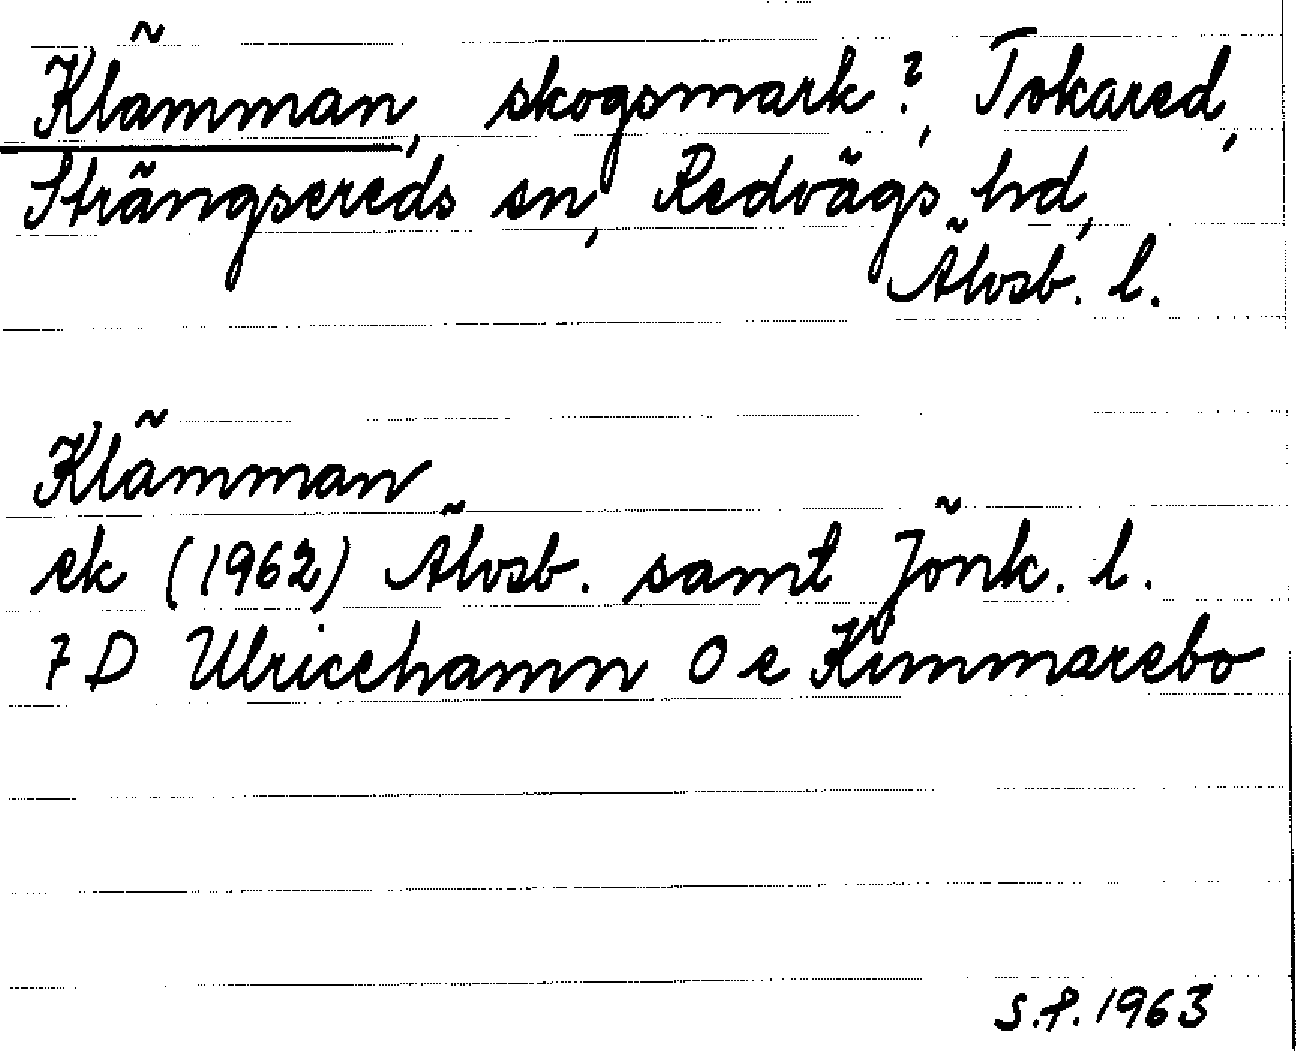 Klämman, skogsmark?, Tokared,
Strängsereds sn, Redvägs hd,
Älvsb. l.
Klämman
ek (1962) Älvsb. samt Jönk. l.
7 D Ulricehamn O e Kimmarebo
S.F. 1963